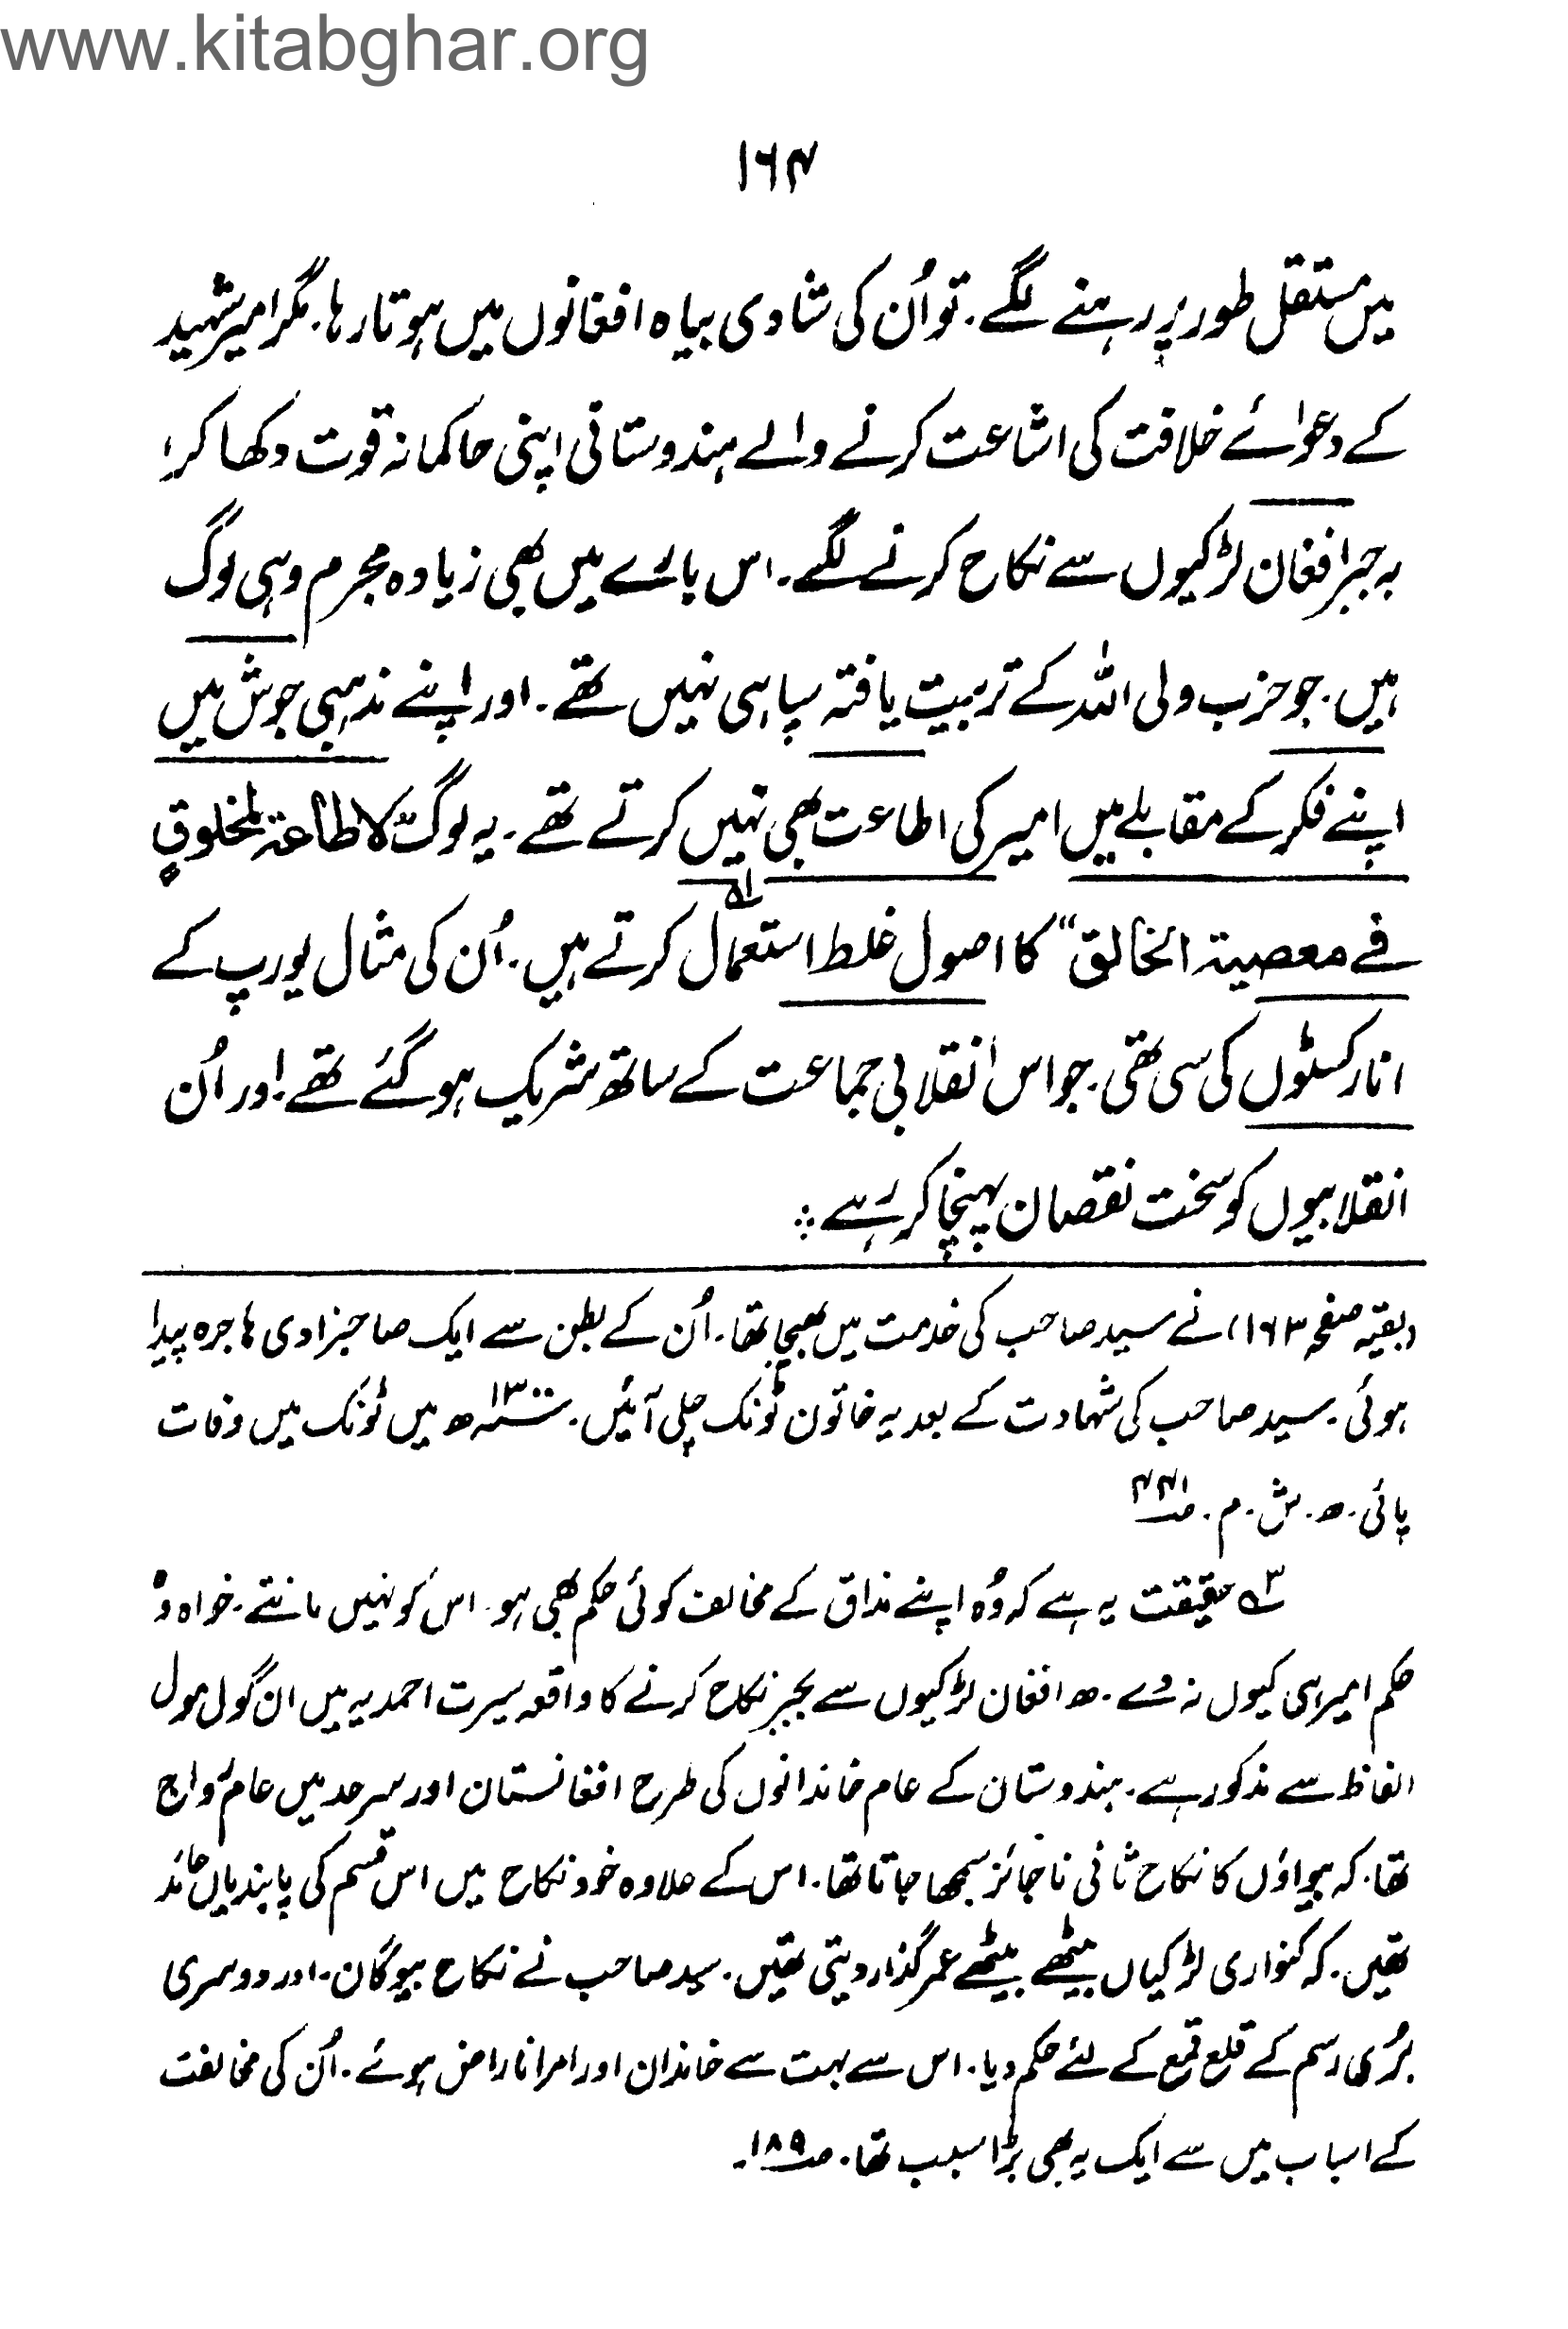 www.kitabghar.org
۱۶۴
میں مستقل طور پر رہنے لگے۔ تو اُن کی شادی بیاہ افغانوں میں ہوتا رہا۔ مگر امیر شہید
کے دعوائے خلافت کی اشاعت کرنے والے ہندوستانی اپنی حاکمانہ قوت دکھا کر
بہ جبر افغان لڑکیوں سے نکاح کرنے لگے۔ اس بارے میں بھی زیادہ مجرم وہی لوگ
ہیں۔ جو حزب ولی اللہ کے تربیت یافتہ سپاہی نہیں تھے۔ اور اپنے مذہبی جوش میں
اپنے فکر کے مقابلے میں امیر کی اطاعت بھی نہیں کرتے تھے۔ یہ لوگ "لاطاعۃ لمخلوقٍ
فے معصیۃ الخالق" کا اصول غلط استعمال کرتے ہیں۔ اُن کی مثال یورپ کے
انارکسٹوں کی سی تھی۔ جو اس انقلابی جماعت کے ساتھ شریک ہو گئے تھے۔ اور اُن
انقلابیوں کو سخت نقصان پہنچا کر رہے
(بقیہ صفحہ ۱۶۳) نے سید صاحب کی خدمت میں بھیجا تھا۔ اُن کے بطن سے ایک صاحبزادی ہاجرہ پیدا
ہوئی۔ سید صاحب کی شہادت کے بعد یہ خاتون ٹونک چلی آئیں۔ ۱۳۰۰ھ میں ٹونک میں وفات
پائی۔ ھ۔ ش۔ م۔ ص۴۴۱
۳ حقیقت یہ ہے کہ وُہ اپنے مذاق کے مخالف کوئی حکم بھی ہو۔ اس کو نہیں مانتے۔ خواہ وُہ
حکم امیر ہی کیوں نہ دے۔ ھ افغان لڑکیوں سے بجبر نکاح کرنے کا واقعہ سیرت احمدیہ میں ان گول مول
الفاظ سے مذکور ہے۔ ہندوستان کے عام خاندانوں کی طرح افغانستان اور سرحد میں عام رواج
تھا۔ کہ بیواؤں کا نکاح ثانی ناجائز سمجھا جاتا تھا۔ اس کے علاوہ خود نکاح میں اس قسم کی پابندیاں عائد
تھیں۔ کہ کنواری لڑکیاں بیٹھے بیٹھے عمر گذار دیتی تھیں۔ سید صاحب نے نکاح بیوگان۔ اور دوسری
بُری رسم کے قلع قمع کے لئے حکم دیا۔ اس سے بہت سے خاندان اور امرا ناراض ہوئے۔ اُن کی مخالفت
کے اسباب میں سے ایک یہ بھی بڑا سبب تھا۔ ص۱۸۹۔